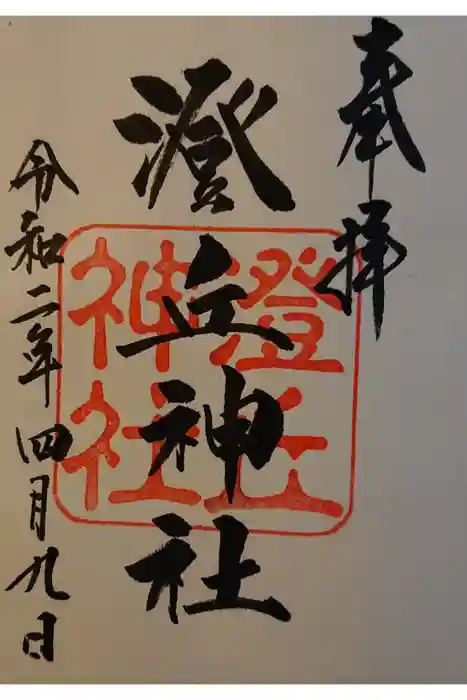 奉拝
澄丘神社
澄丘神社
令和二年四月九日